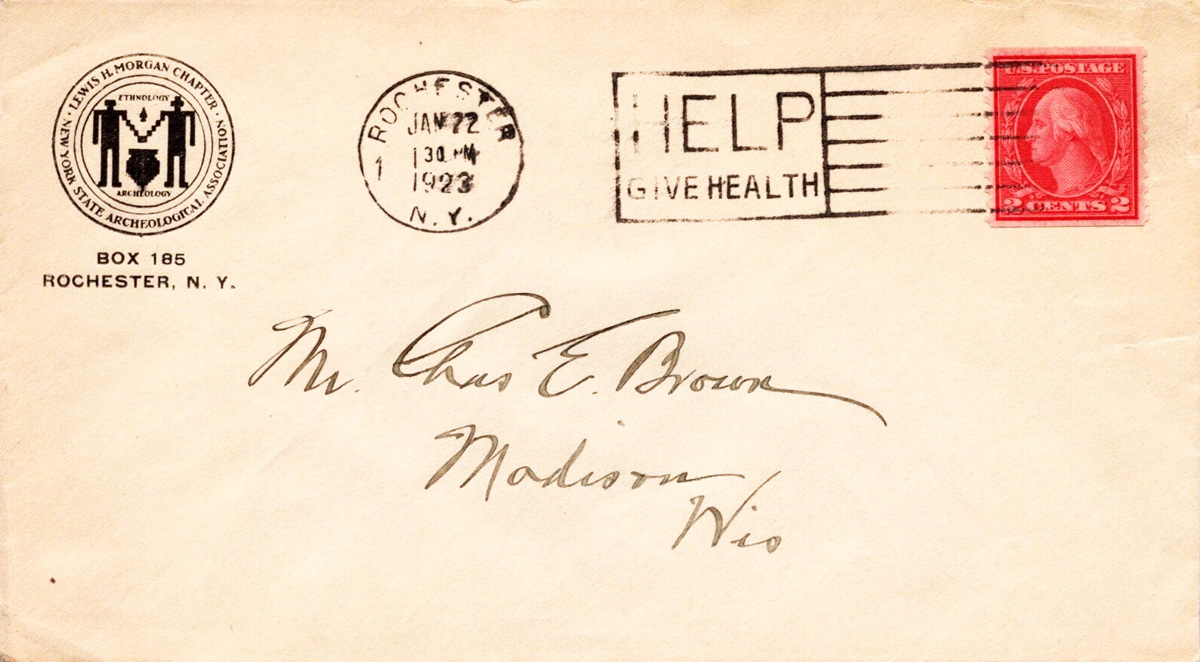 · LEWIS H. MORGAN CHAPTER ·
NEW YORK STATE ARCHEOLOGICAL ASSOCIATION
ETHNOLOGY
ARCHEOLOGY
BOX 185
ROCHESTER, N. Y.
ROCHESTER
JAN 22
1 30 PM
1
1923
N. Y.
HELP
GIVE HEALTH
U.S. POSTAGE
2 CENTS 2
Mr. Chas E. Brown
Madison
Wis